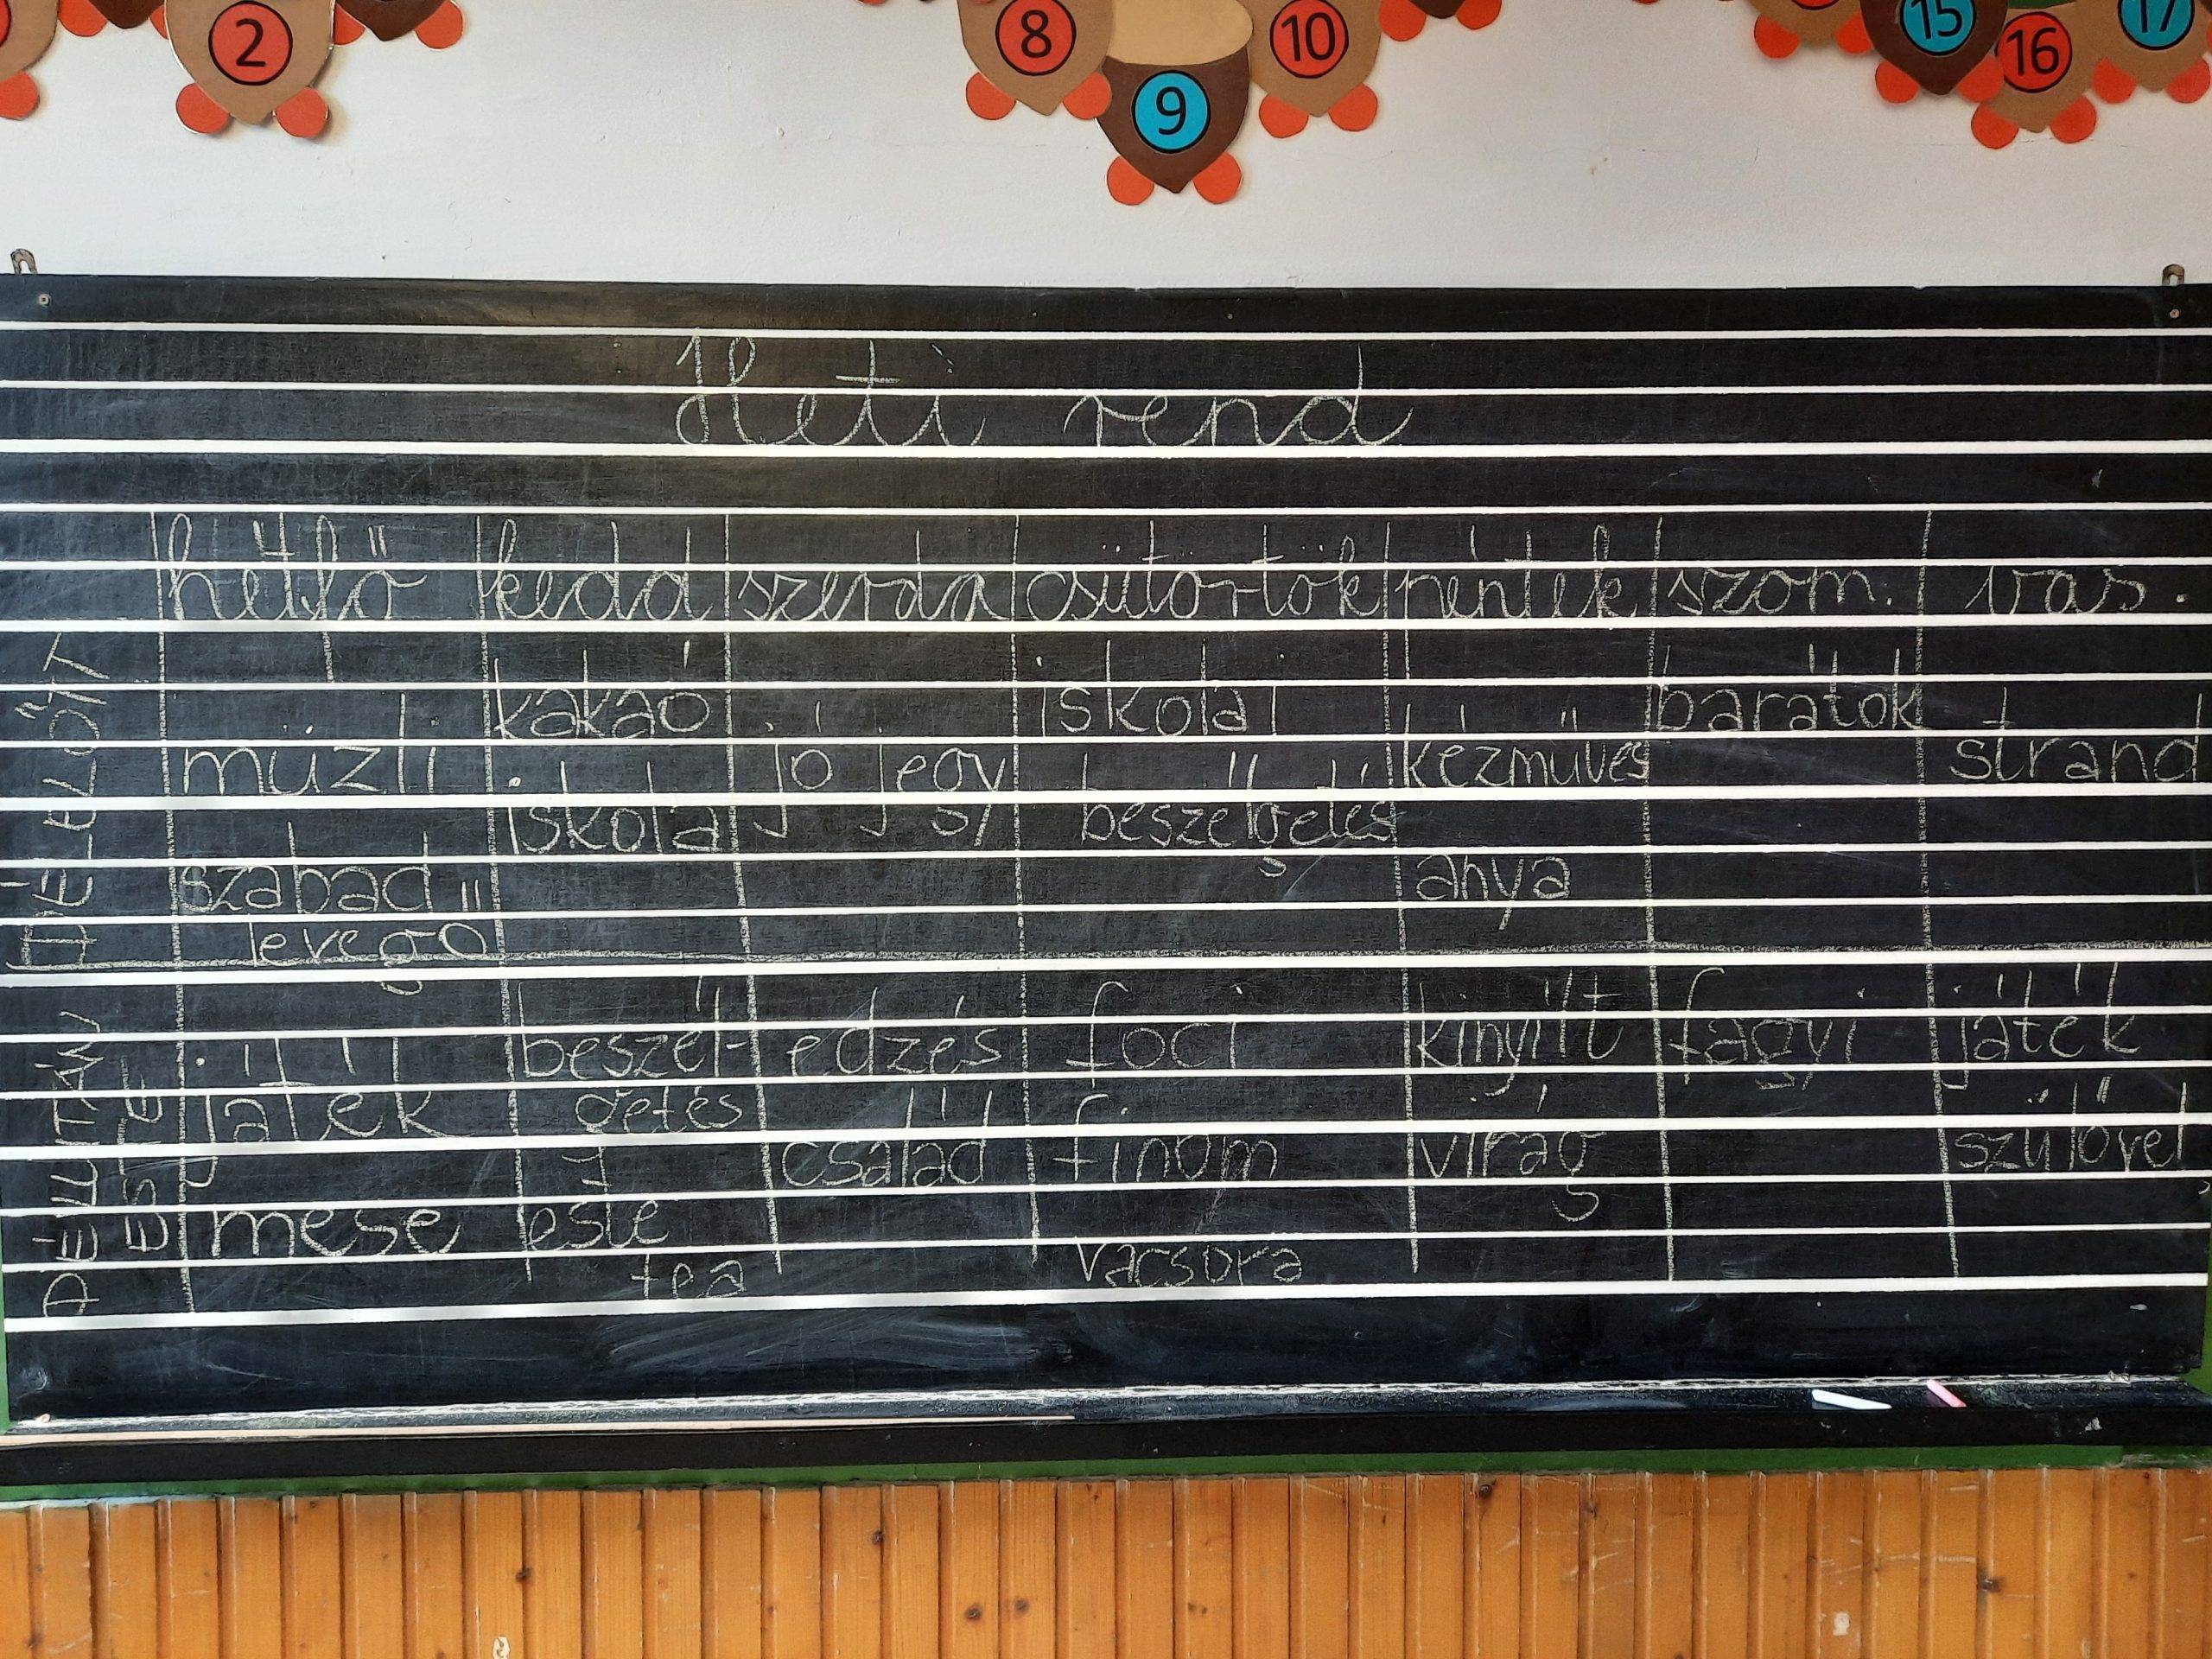 2 8 9 10 15 16 17
Heti rend
hétfő kedd szerda csütörtök péntek szom. vas.
DÉLELŐTT
müzli
szabad
levegő
kakaó
iskola
jó jegy
iskola
beszélgetés
kézműves
anya
barátok
strand
DÉLUTÁN
ESTE
játék
mese
beszél-
getés
este
tea
edzés
család
foci
finom
vacsora
kinyílt
virág
fagyi
játék
szülővel